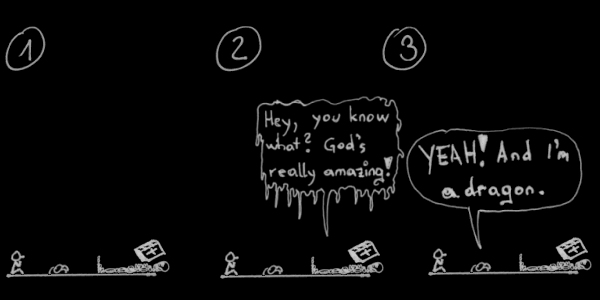 1
2
3
Hey, you know
what? God's
really amazing!
YEAH! And I'm
a dragon.